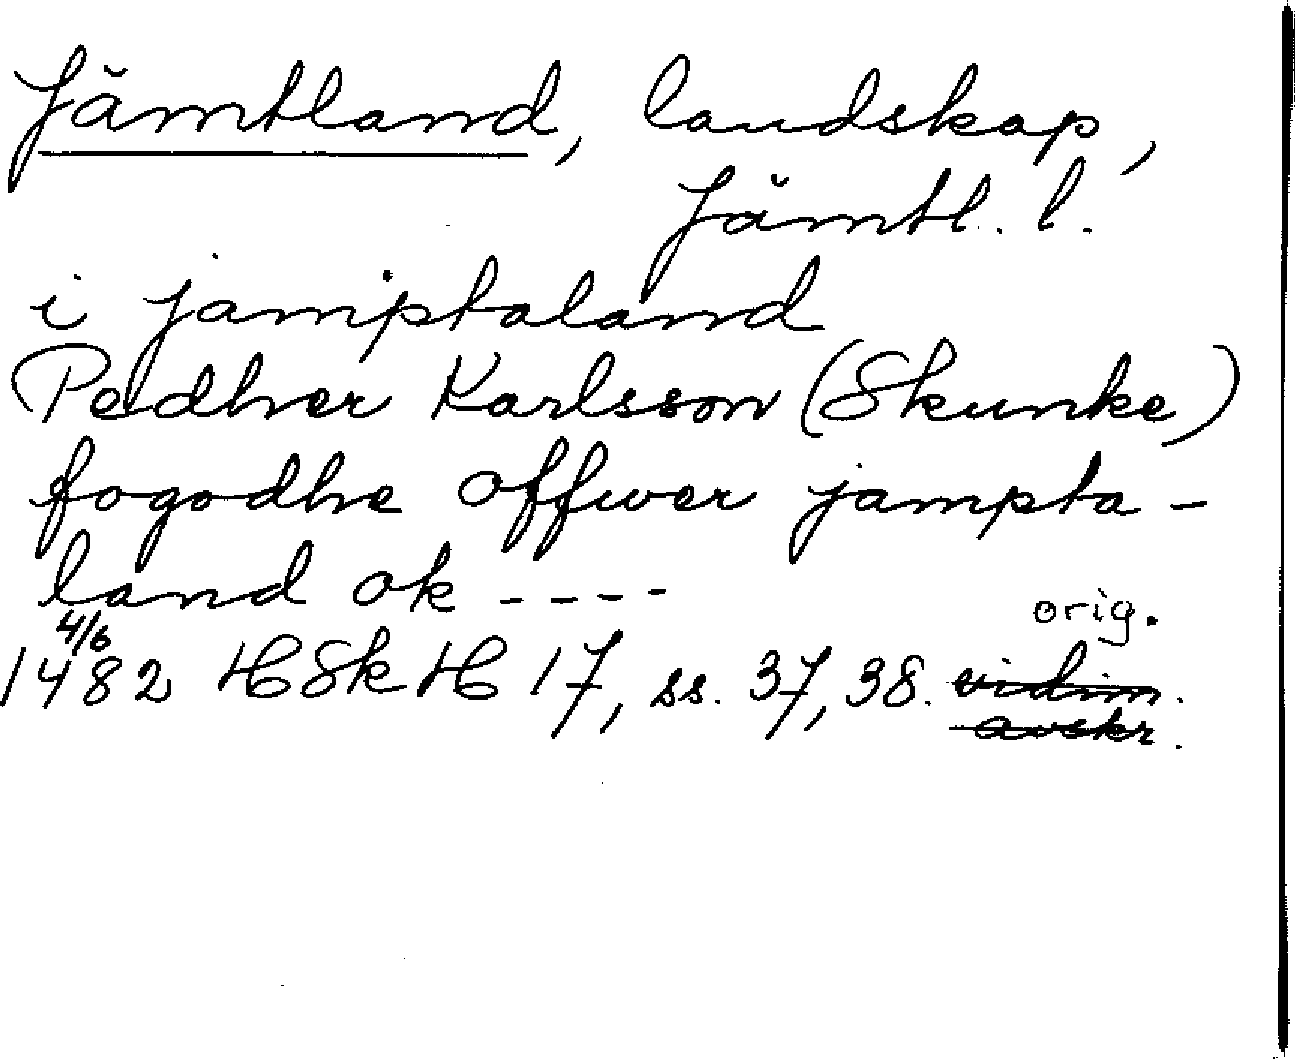 Jämtland, landskap,
Jämtl. l.
i jamptaland
Pedher Karlsson (Skunke)
fogodhe offwer jampta-
land ok ----
4/6
orig.
1482 HSkH 17, ss. 37, 38. vidim.
avskr.